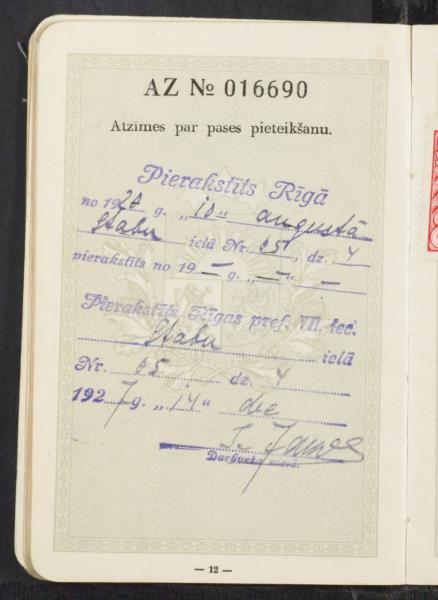 AZ № 016690
Atzīmes par pases pieteikšanu.
Pierakstīts Rīgā
no 192 g. „10“ augustā
Stabu ielā Nr. 65, dz. 4
pierakstīts no 19— g. „—“ —
Pierakstīts Rīgas pref. VII. iec.
Stabu ielā
Nr. 65 dz. 4
1927 g. „14“ dec
Darbveža vietā.
— 12 —